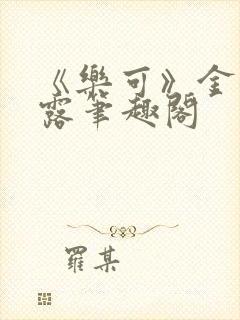 《樂可》金
露筆趣閣
羅某